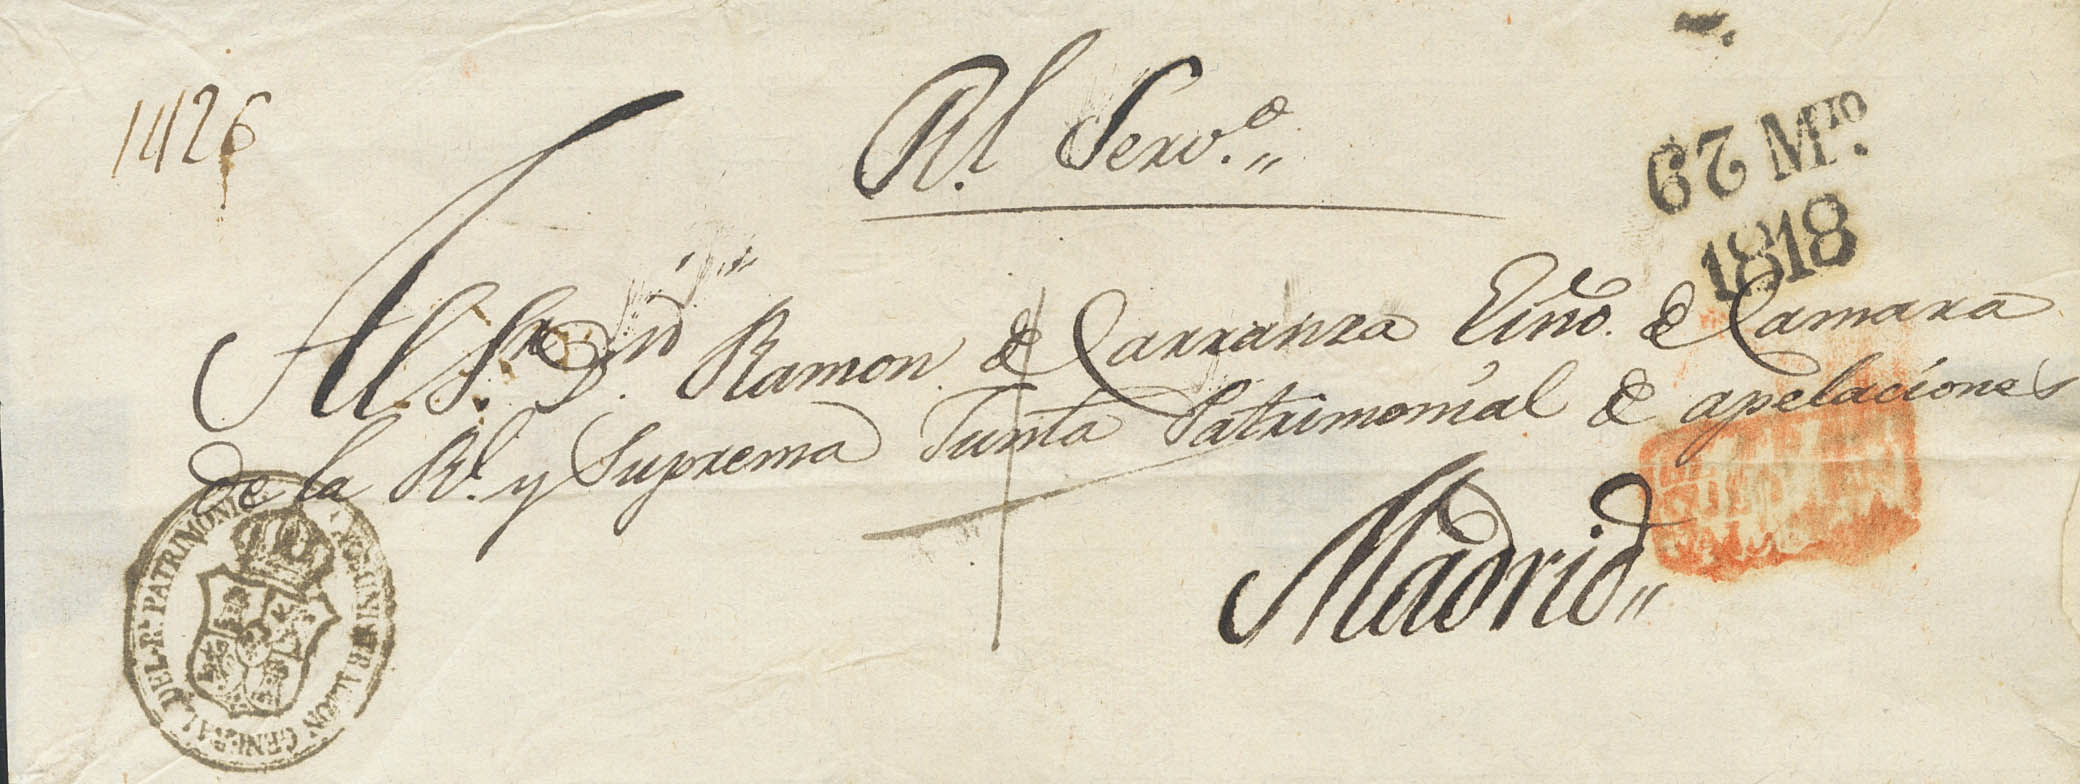 1426
R.l Serv.o
67 M.ro
1818
Al Sr. Dn. Ramon de Carranza Eſno. de Camara
de la Rl. y Suprema Junta Patrimonial de apelaciones
Madrid
ADMINISTRACION GENERAL DEL R. PATRIMONIO